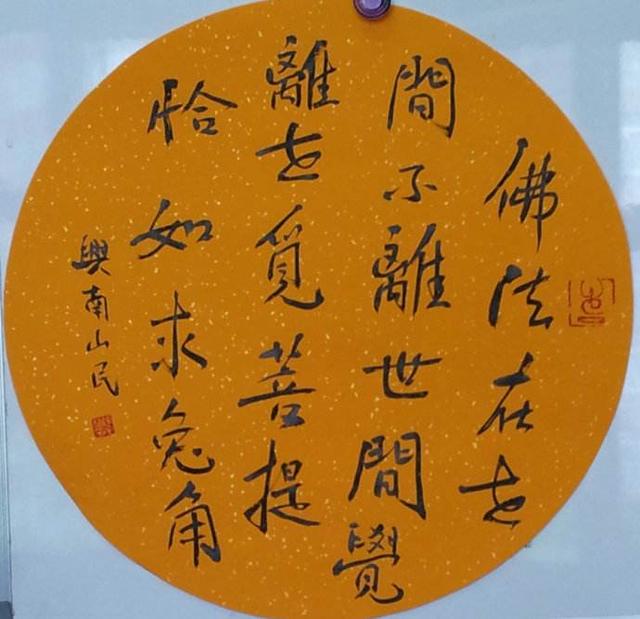 佛法在世
間不離世間覺
離世覓菩提
恰如求兔角
興南山民